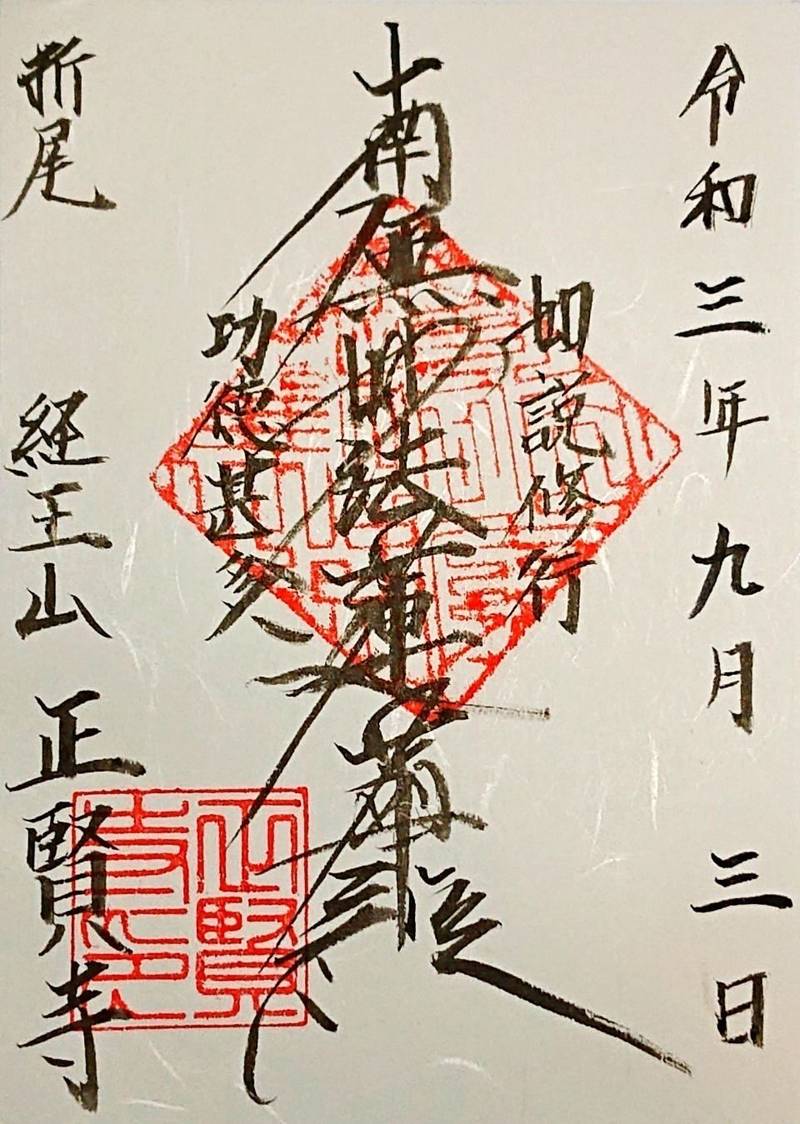 令和三年九月三日
如説修行
南無妙法蓮華経
功徳甚多
折尾 経王山 正賢寺
正賢寺印